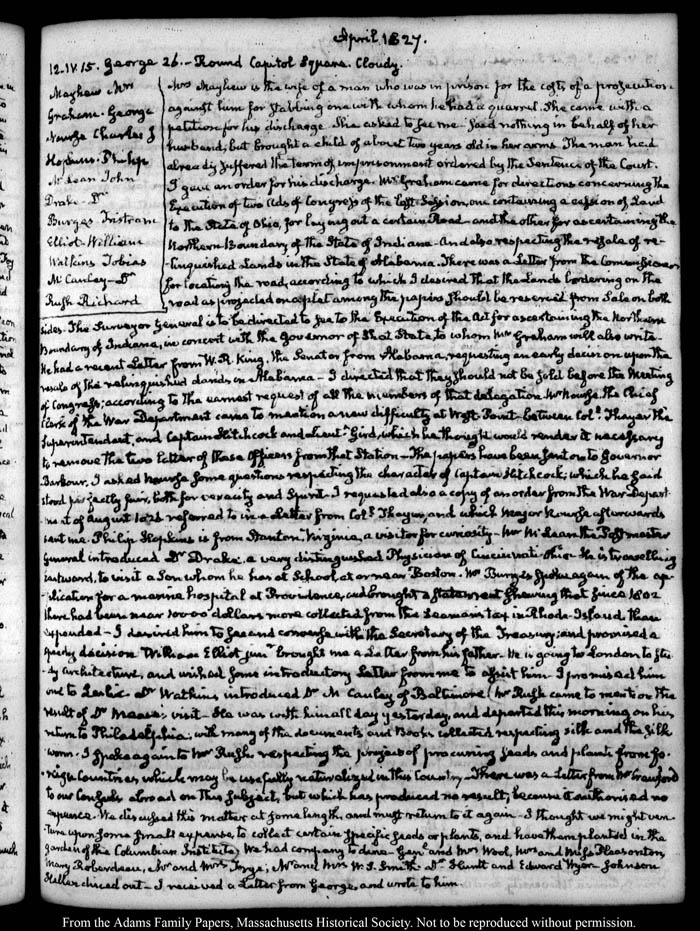 April 1827.
12. IV. 15. George 26. - Round Capitol Square. Cloudy.
Mayhew Mrs
Graham. George
Nourse Charles J
Hopkins. Philip
McLean John
Drake - Dr
Burges Tristram
Elliot William
Watkins Tobias
McCauley - Dr
Rush Richard
Mrs Mayhew is the wife of a man who was in prison for the costs of a prosecution
against him for stabbing one with whom he had a quarrel. She came with a
petition for his discharge. She asked to see me. Said nothing in behalf of her
husband, but brought a child of about two years old in her arms. The man had
already suffered the term of imprisonment ordered by the Sentence of the Court.
I gave an order for his discharge. Mr Graham came for directions concerning the
Execution of two Acts of Congress of the last Session, one containing a cession of Land
to the State of Ohio, for laying out a certain Road - and the other for ascertaining the
Northern Boundary of the State of Indiana - And also respecting the resale of re-
linquished Lands in the State of Alabama. There was a Letter from the Commissioner
for locating the road, according to which I desired that the Lands bordering on the
road as projected on a plat among the papers should be reserved from Sale on both
sides. The Surveyor General is to be directed to see to the Execution of the Act for ascertaining the Northern
Boundary of Indiana, in concert with the Governor of that State, to whom Mr Graham will also write -
He had a recent Letter from W. R. King, the Senator from Alabama, requesting an early decision upon the
resale of the relinquished lands in Alabama - I directed that they should not be sold before the Meeting
of Congress; according to the earnest request of all the members of that delegation. Mr Nourse the Chief
Clerk of the War Department came to mention a new difficulty at West-Point between Col. Thayer the
Superintendent, and Captain Hitchcock and Lieut. Gird, which he thought would render it necessary
to remove the two latter of these Officers from that Station - The papers have been sent on to Governor
Barbour. I asked Nourse some questions respecting the character of Captain Hitchcock; which he said
stood perfectly fair, both for veracity and Spirit. I requested also a copy of an order from the War Depart-
ment of August referred to in a Letter from Col. Thayer, and which Major Nourse afterwards
sent me. Philip Hopkins is from Staunton Virginia, a visitor for curiosity - Mr McLean the Postmaster
General introduced Dr Drake, a very distinguished Physician of Cincinnati Ohio - He is travelling
eastward, to visit a Son whom he has at School at or near Boston. Mr Burges spoke again of the ap-
plication for a marine hospital at Providence, and brought a statement shewing that since 1802
there had been near dollars more collected from the Seamen's tax in Rhode-Island than
expended - I desired him to see and converse with the Secretary of the Treasury; and promised a
speedy decision William Elliot junr brought me a Letter from his father. He is going to London to stu-
dy architecture, and wished some introductory Letter from me to assist him - I promised him
one to Leslie - Dr Watkins introduced Dr McCauley of Baltimore. Mr Rush came to mention the
result of Dr Mease's visit - He was with him all day yesterday, and departed this morning on his
return to Philadelphia; with many of the documents and Books collected respecting silk and the Silk
worm. I spoke again to Mr Rush respecting the project of procuring seeds and plants from fo-
reign Countries which may be usefully naturalized in this Country - There was a Letter from Mr Crawford
to our Consuls abroad on this subject, but which has produced no result, because it authorised no
expence. We discussed this matter at some length, and must return to it again - I thought we might ven-
ture upon some small expense, to collect certain specific seeds or plants, and have them planted in the
garden of the Columbian Institute. We had company to dine - Genl and Mrs Wool, Mrs and Miss Pleasonton,
Mary Roberdeau, Mr and Mrs Frye, Mr and Mrs W. S. Smith - Dr Huntt and Edward Wyer - Johnson
Hellen dined out - I received a Letter from George, and wrote to him
From the Adams Family Papers, Massachusetts Historical Society. Not to be reproduced without permission.